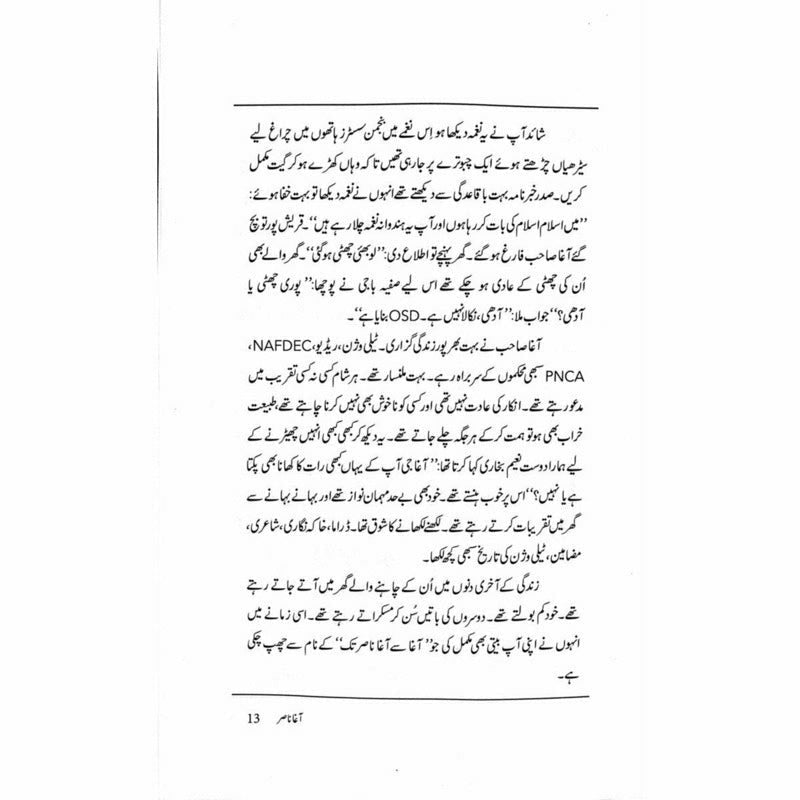 شائد آپ نے یہ نغمہ دیکھا ہو اِس نغمے میں بنجمن سسٹرز ہاتھوں میں چراغ لیے
سیڑھیاں چڑھتے ہوئے ایک چبوترے پر جا رہی تھیں تا کہ وہاں کھڑے ہو کر گیت مکمل
کریں۔ صدر خبرنامہ بہت باقاعدگی سے دیکھتے تھے انہوں نے نغمہ دیکھا تو بہت خفا ہوئے:
”میں اسلام اسلام کی بات کر رہا ہوں اور آپ یہ ہندوانہ نغمہ چلا رہے ہیں“۔ قریش پور تو بچ
گئے آغا صاحب فارغ ہو گئے۔ گھر پہنچے تو اطلاع دی: ”لو بھئی چھٹی ہو گئی“۔ گھر والے بھی
اُن کی چھٹی کے عادی ہو چکے تھے اس لیے صفیہ باجی نے پوچھا: ”پوری چھٹی یا
آدھی؟“ جواب ملا: ”آدھی، نکالا نہیں ہے۔ OSD بنایا ہے“۔
آغا صاحب نے بہت بھرپور زندگی گزاری۔ ٹیلی وژن، ریڈیو، NAFDEC،
PNCA سبھی محکموں کے سربراہ رہے۔ بہت ملنسار تھے۔ ہر شام کسی نہ کسی تقریب میں
مدعو رہتے تھے۔ انکار کی عادت نہیں تھی اور کسی کو ناخوش بھی نہیں کرنا چاہتے تھے، طبیعت
خراب بھی ہو تو ہمت کر کے ہر جگہ چلے جاتے تھے۔ یہ دیکھ کر کبھی کبھی انہیں چھیڑنے کے
لیے ہمارا دوست نعیم بخاری کہا کرتا تھا: ”آغا جی آپ کے یہاں کبھی رات کا کھانا بھی پکتا
ہے یا نہیں؟“ اس پر خوب ہنستے تھے۔ خود بھی بے حد مہمان نواز تھے اور بہانے بہانے سے
گھر میں تقریبات کرتے رہتے تھے۔ لکھنے لکھانے کا شوق تھا۔ ڈراما، خاکہ نگاری، شاعری،
مضامین، ٹیلی وژن کی تاریخ سبھی کچھ لکھا۔
زندگی کے آخری دنوں میں اُن کے چاہنے والے گھر میں آتے جاتے رہتے
تھے۔ خود کم بولتے تھے۔ دوسروں کی باتیں سُن کر مسکراتے رہتے تھے۔ اسی زمانے میں
انہوں نے اپنی آپ بیتی بھی مکمل کی جو ”آغا سے آغا ناصر تک“ کے نام سے چھپ چکی
ہے۔
آغا ناصر 13